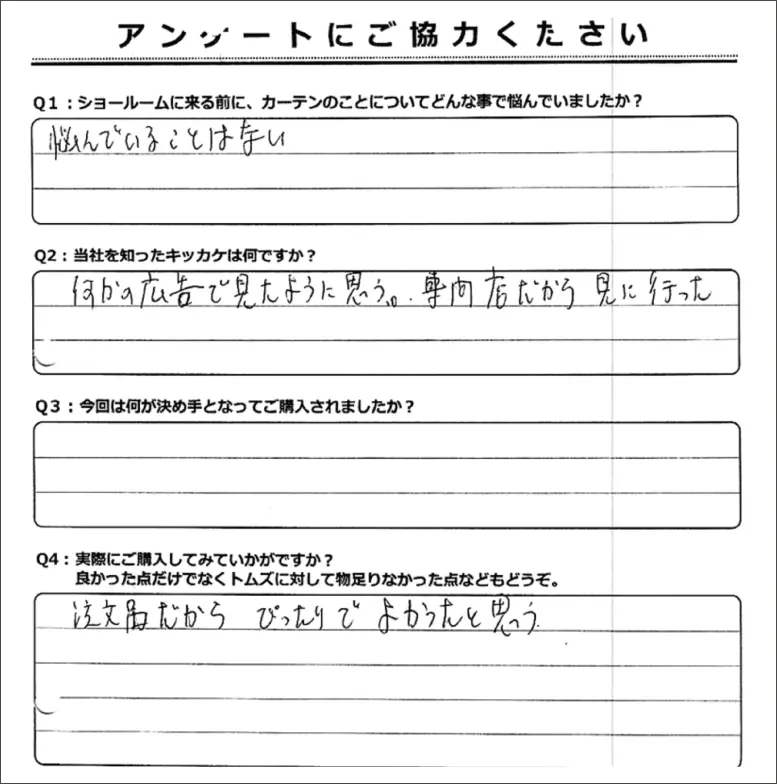 アンケートにご協力ください
Q1：ショールームに来る前に、カーテンのことについてどんな事で悩んでいましたか？
悩んでいることはない
Q2：当社を知ったキッカケは何ですか？
何かの広告で見たように思う。専門店だから見に行った
Q3：今回は何が決め手となってご購入されましたか？
Q4：実際にご購入してみていかがですか？
良かった点だけでなくトムズに対して物足りなかった点などもどうぞ。
注文品だから ぴったりで よかったと思う